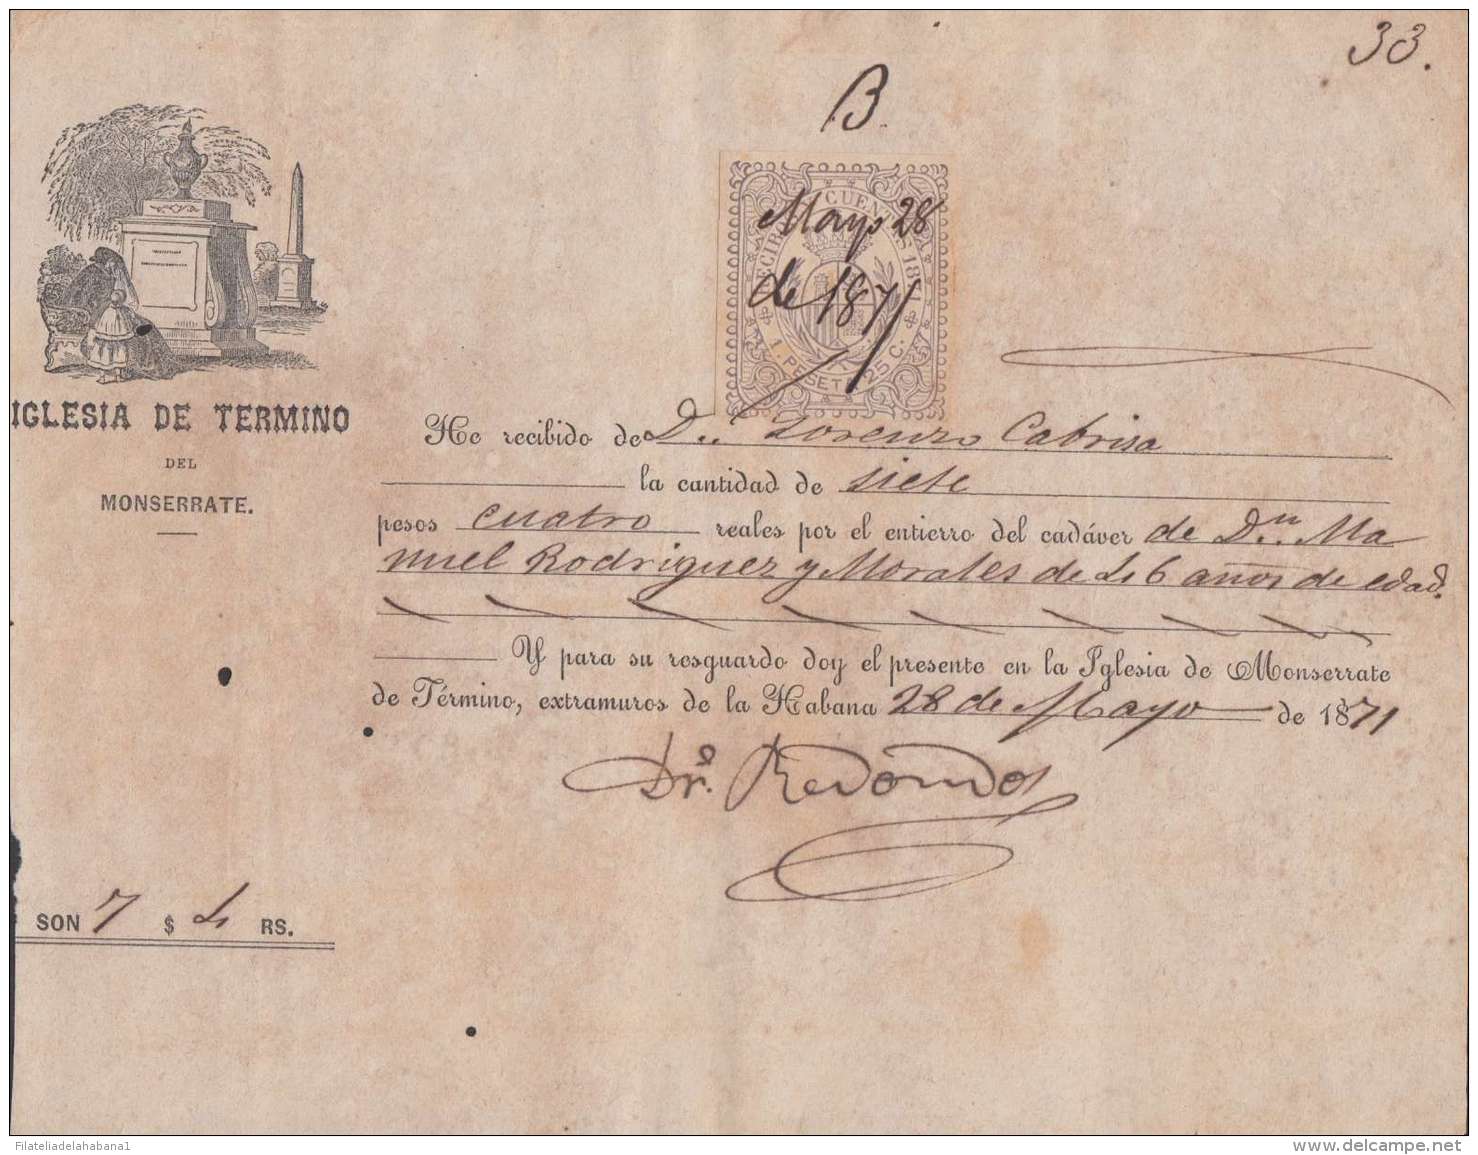 33.
B.
RECIBOS CUENTAS 1871
Mayo 28
de 1871
1. PESETA 25 C.
IGLESIA DE TERMINO
DEL
MONSERRATE.
He recibido de Dn. Lorenzo Cabrisa
la cantidad de siete
pesos cuatro reales por el entierro del cadáver de Dn. Ma
nuel Rodriguez y Morales de 46 años de edad.
Y para su resguardo doy el presente en la Iglesia de Monserrate
de Término, extramuros de la Habana 28 de Mayo de 1871
Dr. Redondo
SON 7 $ 4 RS.
Filateliadelahabana1
delcampe.net